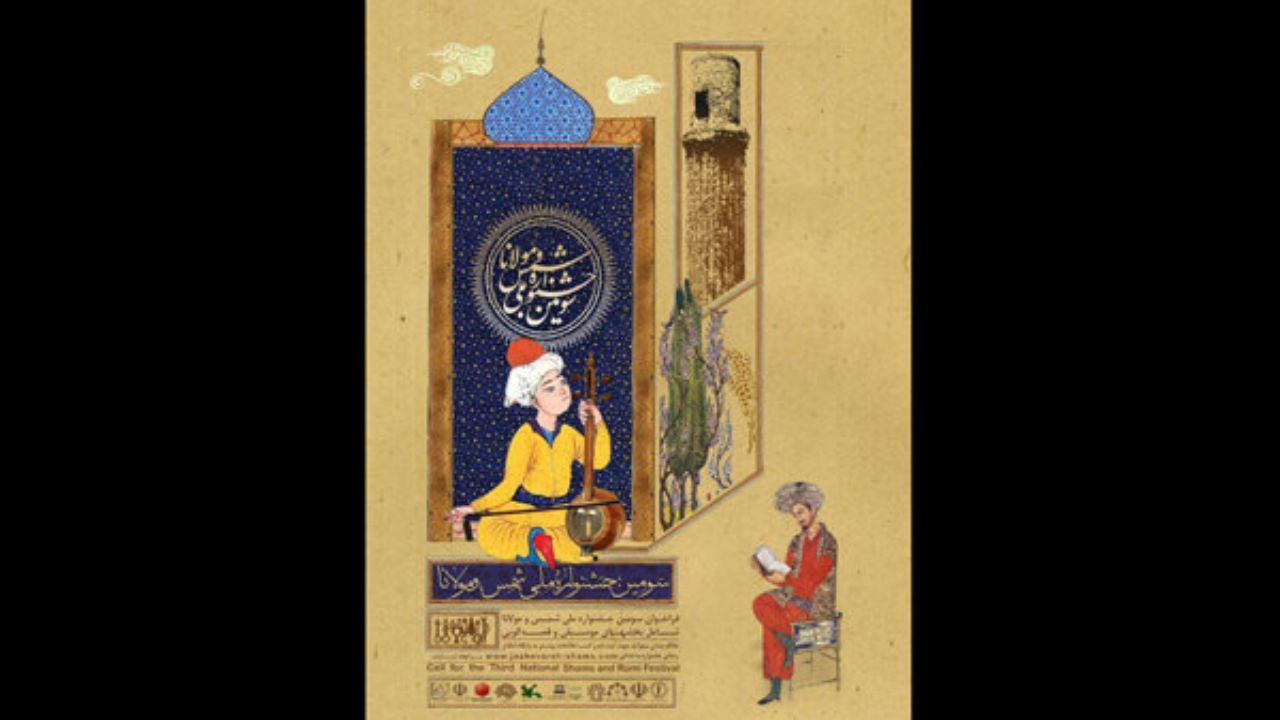 سومین جشنواره ملی شمس و مولانا
سومین جشنواره ملی شمس و مولانا
فراخوان سومین جشنواره ملی شمس و مولانا
شامل بخشهای موسیقی و قصه گویی
Call for the Third National Shams and Rumi Festival